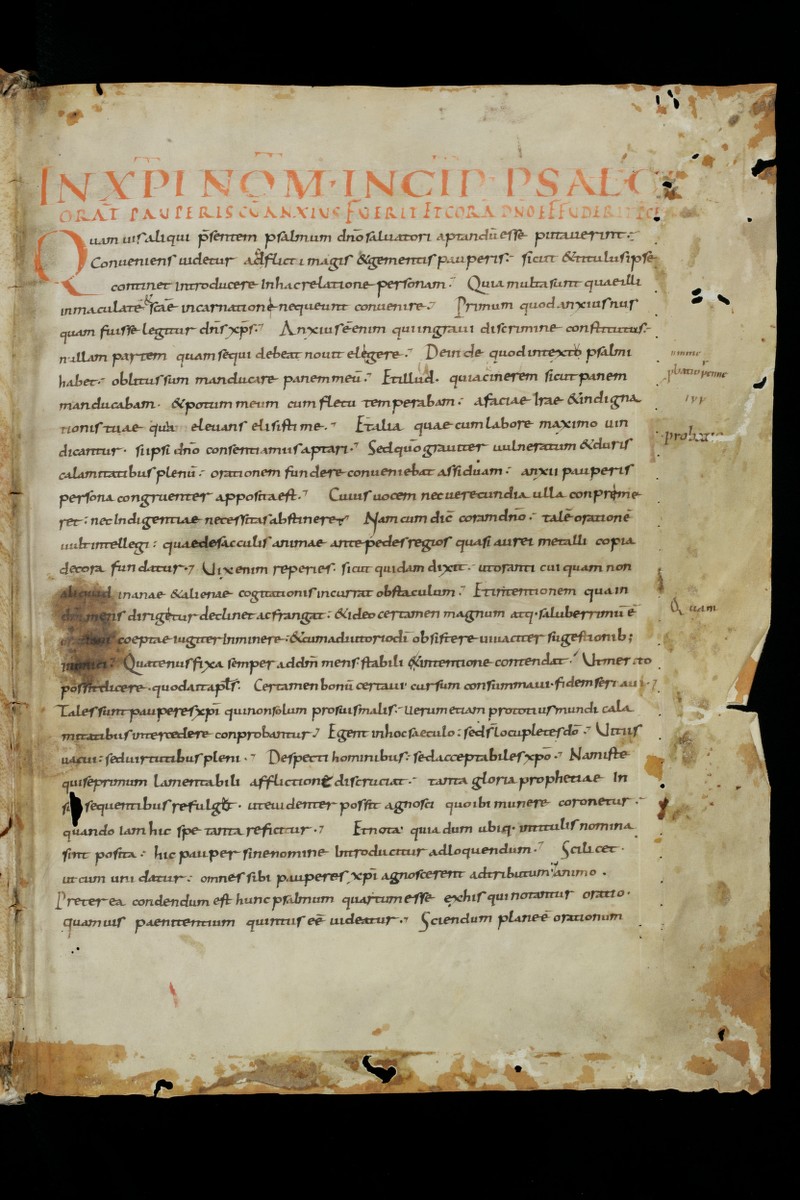 IN XPI NOM· INCIP PSAL C
ORAT PAUPERIS CU ANXIUS FUERIT ET CORA DNO EFFUDERIT
Quam uis aliqui psentem psalmum dno saluatori aptandu esse putauerint:
Conueniens uidetur adflicti magis & gementis pauperis: sicut & titulus ipse
continet introducere in hac relatione personam. Quia multa sunt quae illi
inmaculate scae incarnationi nequeunt conuenire. Primum quod anxius nus
quam fuisse legitur dns xps. Anxius e enim qui in graui discrimine constitutus:
nullam partem quam sequi debeat nouit eligere. Dein de quod in texto psalmi
habet oblitus sum manducare panem meu. Et illud. quia cinerem sicut panem
manducabam. & potum meum cum fletu temperabam: a faciae irae & indigna
tionis tuae quia eleuans elisisti me. Et alia quae cum labore maximo uin
dicantur. si ipsi dno consentiamus aptari. Sed quo grauiter uulneratum & duris
calamitatibus plenu: orationem fundere conueniebat assiduam: anxii pauperis
persona congruenter apposita est. Cuius uocem nec uerecundia ulla conprime
ret: nec indigentiae necessitas abstineret. Nam cum dic coram dno: tale oratione
uult intellegi: quae de sacculis animae ante pedes regios quasi aurei metalli copia
decora fundatur. Uix enim reperies. sicut quidam dixit. ut oranti cuiquam non
aliquid inanae & alienae cogitationis incurrat obstaculum. Et intentionem qua in
dm mens dirigitur declinet ac frangat: & ideo certamen magnum atq. saluberrimu e
orationi coeptae iugiter inminere: & cum adiutorio di obsistere uiuaciter sugestionib;
inimici. Quatenus fixa semper ad dm mens stabili intentione contendat. Ut merito
possit dicere. quod ait apls. Certamen bonu certaui cursum consummaui. fidem seruaui
Tales sunt pauperes xpi qui non solum pro suis malis: uerum etiam pro totius mundi cala
mitatibus intercedere conprobantur. Egent in hoc saeculo: sed s locupletes do. Uitiis
uacui: sed uirtutibus pleni. Despecti hominibus: sed acceptabiles xpo. Nam iste
qui se primum lamentabili afflictione discruciat: tanta gloria prophetiae in
sub sequentibus refulg&. ut euidenter possit agnosci quo ibi munere coronetur:
quando iam hic spe tanta reficitur. Et nota quia dum ubiq. in titulis nomina
sint posita: hic pauper sine nomine introducitur ad loquendum. Scilicet
ut cum uni datur: omnes sibi pauperes xpi agnoscerent adtributum animo.
Preterea condendum est hunc psalmum quartum esse ex his qui notantur oratio.
quamuis paenitentium quintus ee uideatur. Sciendum plane e orationum